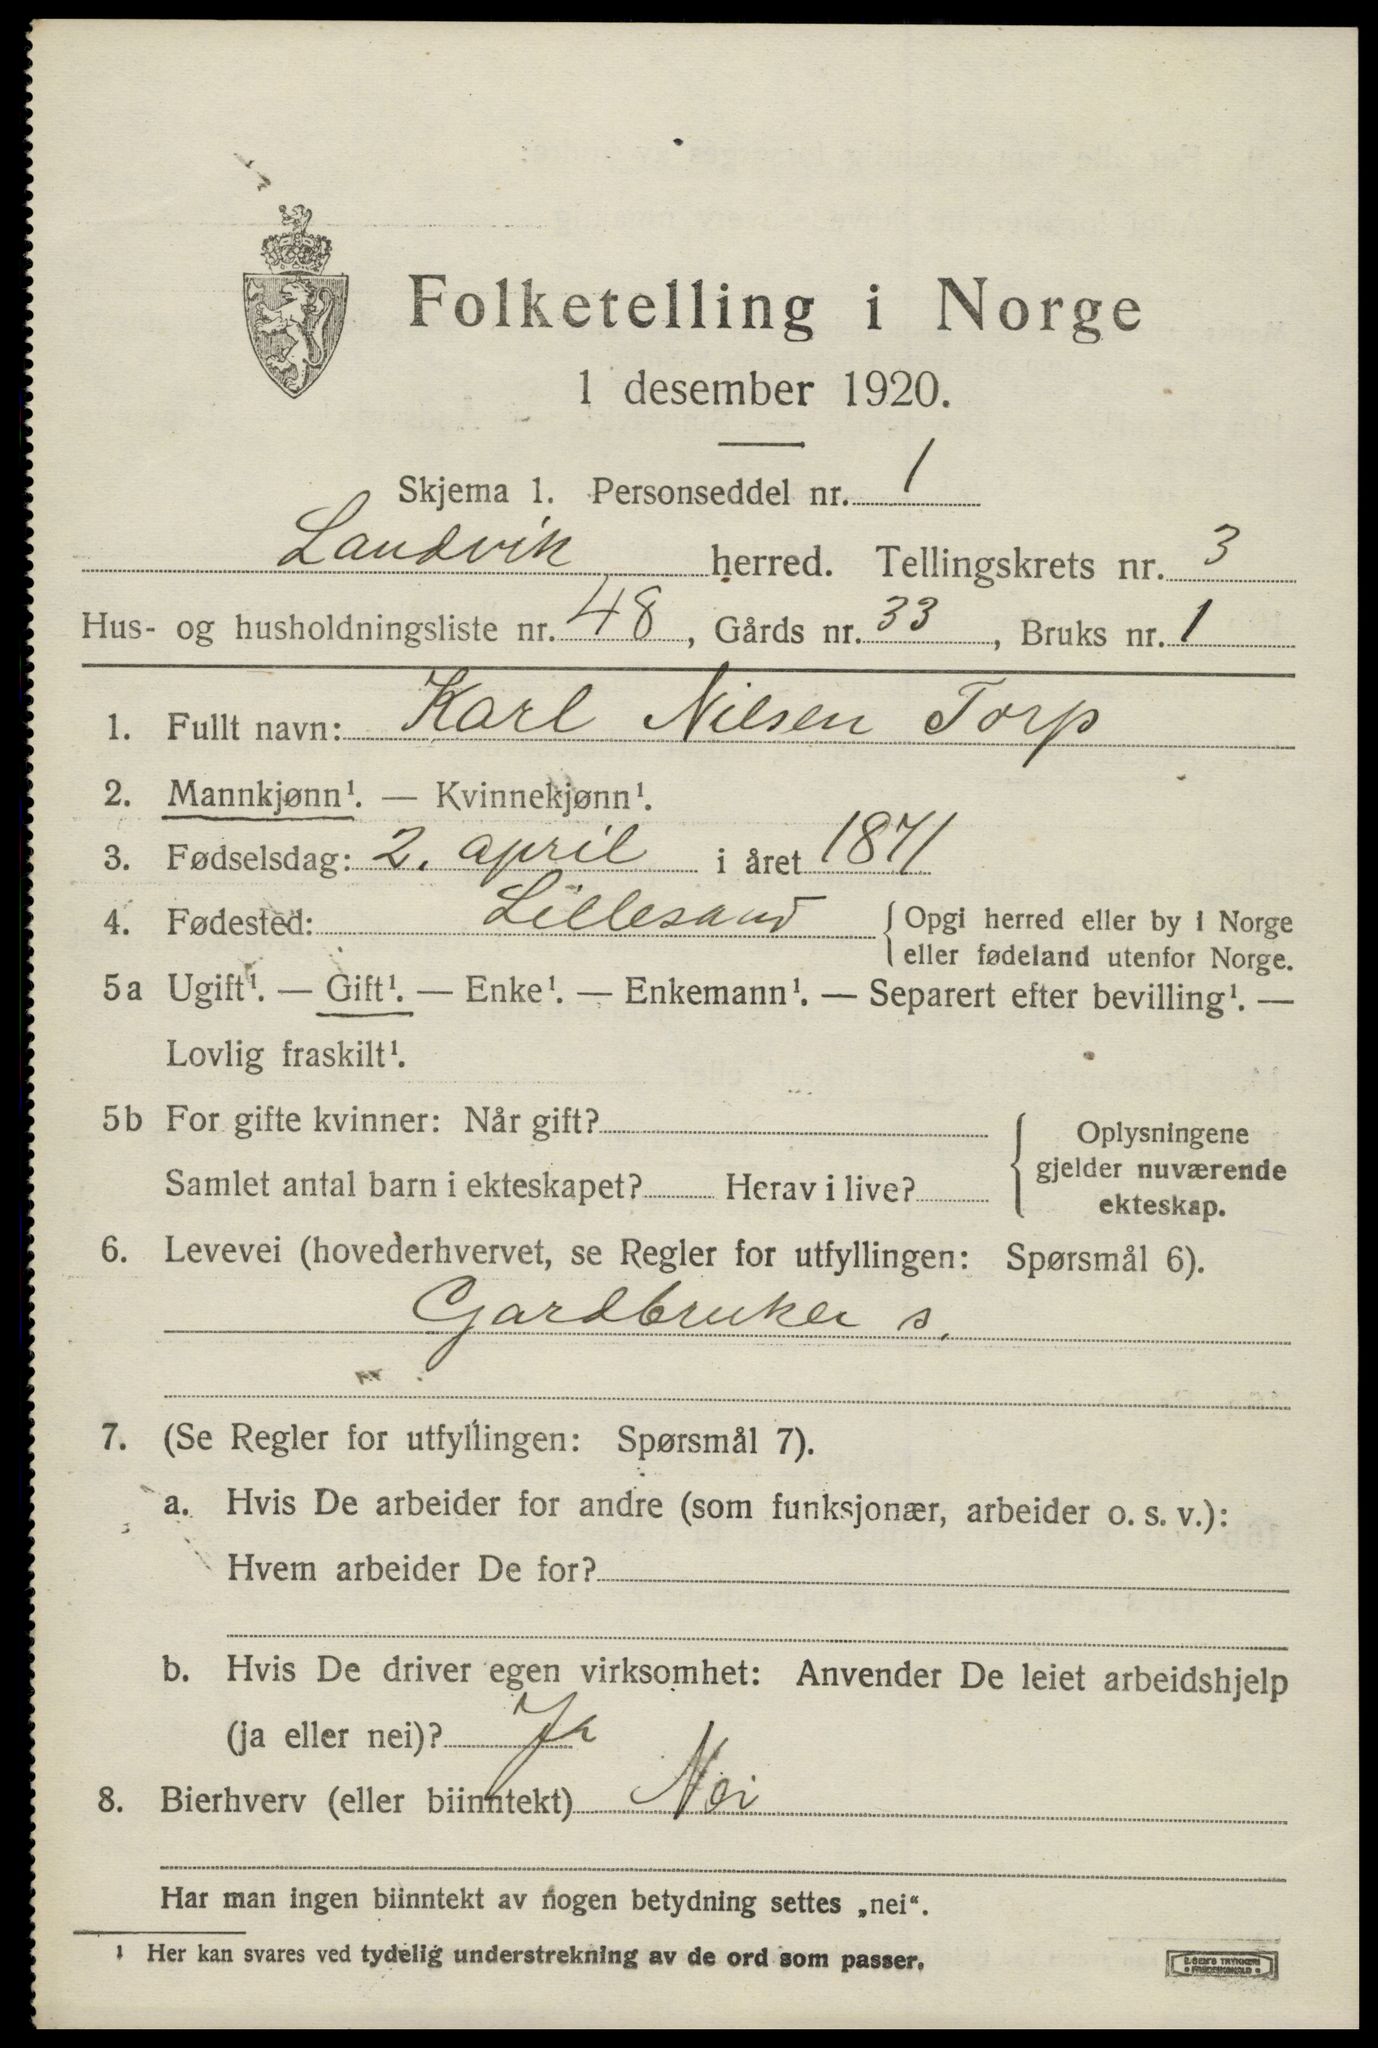 Folketelling i Norge
1 desember 1920.
Skjema 1. Personseddel nr. 1
Landvik herred. Tellingskrets nr. 3
Hus- og husholdningsliste nr. 48, Gårds nr. 33, Bruks nr. 1
1. Fullt navn: Karl Nilsen Torp
2. Mannkjønn¹. — Kvinnekjønn¹.
3. Fødselsdag: 2. april i året 1871
4. Fødested: Lillesand { Opgi herred eller by i Norge
eller fødeland utenfor Norge.
5a Ugift¹. — Gift¹. — Enke¹. — Enkemann¹. — Separert efter bevilling¹. —
Lovlig fraskilt¹.
5b For gifte kvinner: Når gift?
Samlet antal barn i ekteskapet? Herav i live?
Oplysningene
gjelder nuværende
ekteskap.
6. Levevei (hovederhvervet, se Regler for utfyllingen: Spørsmål 6).
Gardbruker s.
7. (Se Regler for utfyllingen: Spørsmål 7).
a. Hvis De arbeider for andre (som funksjonær, arbeider o. s. v.):
Hvem arbeider De for?
b. Hvis De driver egen virksomhet: Anvender De leiet arbeidshjelp
(ja eller nei)? Ja
8. Bierhverv (eller biinntekt) Nei
Har man ingen biinntekt av nogen betydning settes „nei“.
¹ Her kan svares ved tydelig understrekning av de ord som passer.